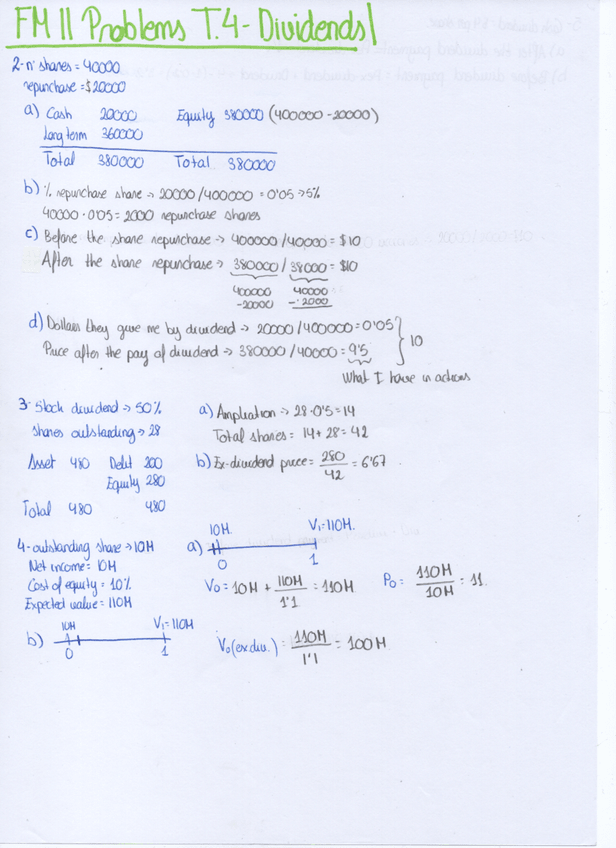 FM II Problems T.4- Dividends
2- nº shares = 40000
repurchase = $20000
a) Cash 20000 Equity 380000 (400000 - 20000)
Long term 360000
Total 380000 Total 380000
b) % repurchase share → 20000/400000 = 0'05 → 5%
40000 · 0'05 = 2000 repurchase shares
c) Before the share repurchase → 400000/40000 = $10
After the share repurchase → 380000/38000 = $10
400000 40000
-20000 -2000
d) Dollars they give me by dividend → 20000/400000 = 0'05 } 10
Price after the pay of dividend → 380000/40000 = 9'5
What I have in actions
3- Stock dividend → 50% a) Ampliation → 28 · 0'5 = 14
shares outstanding → 28 Total shares = 14 + 28 = 42
Asset 480 Debit 200 b) Ex-dividend price = 280/42 = 6'67
Equity 280
Total 480 480
4- outstanding share → 10M a) 10M. V₁=110M. 0 1
Net income = 10M
Cost of equity = 10% V₀ = 10M + 110M/1'1 = 110M P₀ = 110M/10M = 11
Expected value = 110M
b) 10M V₁=110M 0 1 V₀(exdiv.) = 110M/1'1 = 100M